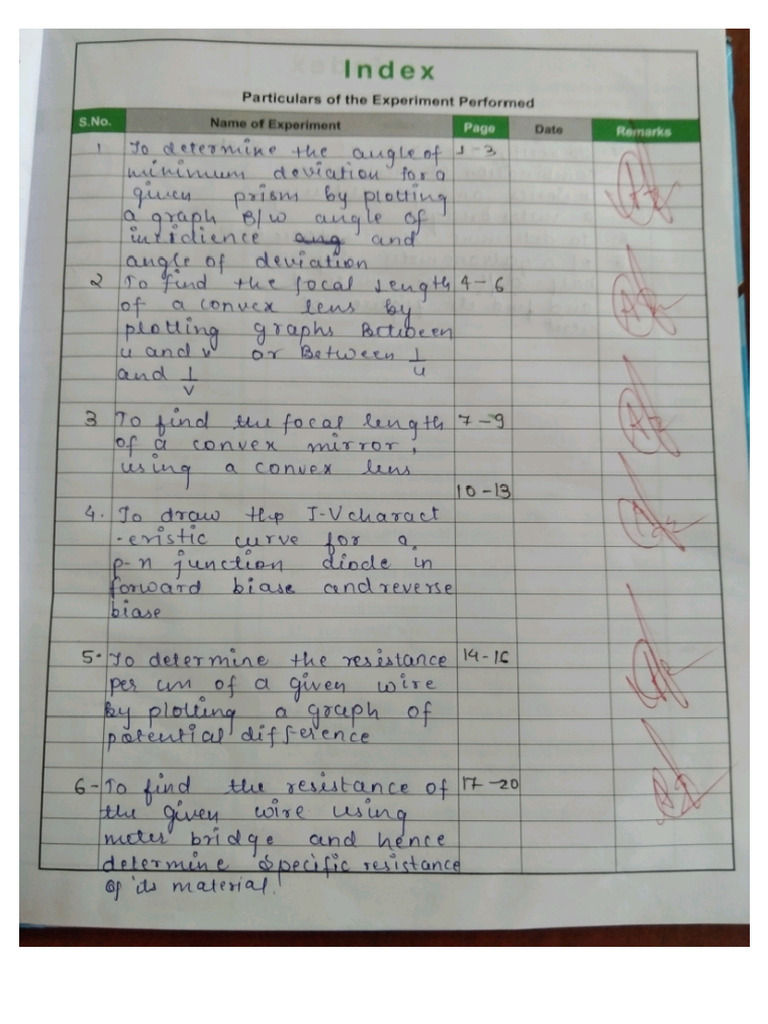 Index
Particulars of the Experiment Performed
S.No. Name of Experiment Page Date Remarks
1 To determine the angle of 1-3
minimum deviation for a
given prism by plotting
a graph B/w angle of
incidience ang and
angle of deviation
2 To find the focal length 4-6
of a convex lens by
plotting graphs Between
u and v or Between 1/u
and 1/v
3 To find the focal length 7-9
of a convex mirror,
using a convex lens
10-13
4. To draw the I-V charact
-eristic curve for a
p-n junction diode in
forward biase and reverse
biase
5. To determine the resistance 14-16
per cm of a given wire
by plotting a graph of
potential difference
6- To find the resistance of 17-20
the given wire using
meter bridge and hence
determine specific resistance
of its material.